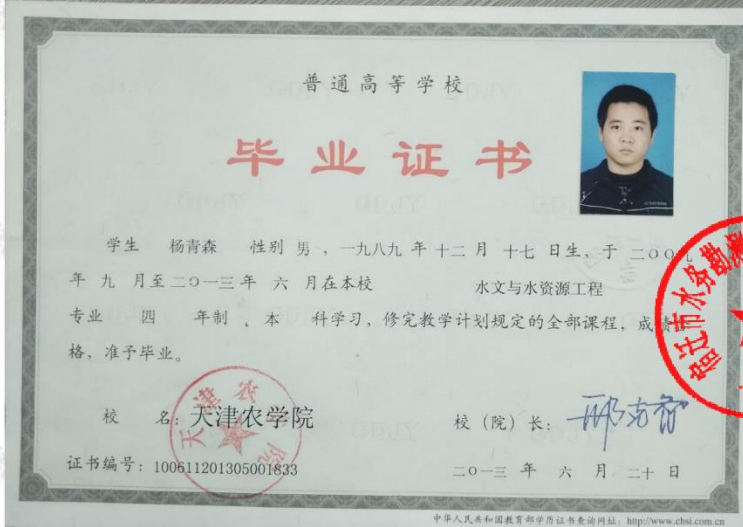 普通高等学校
毕业证书
学生 杨青森 性别 男 ，一九八九 年 十二 月 十七 日生，于 二〇〇九
年 九 月至 二〇一三 年 六 月在本校 水文与水资源工程
专业 四 年制 、本 科学习，修完教学计划规定的全部课程，成绩
格，准予毕业。
校 名：天津农学院
校（院）长：
证书编号：100611201305001833
二〇一三 年 六 月 二十 日
中华人民共和国教育部学历证书查询网址：http://www.chsi.com.cn
天津农学院
宿迁市水务勘